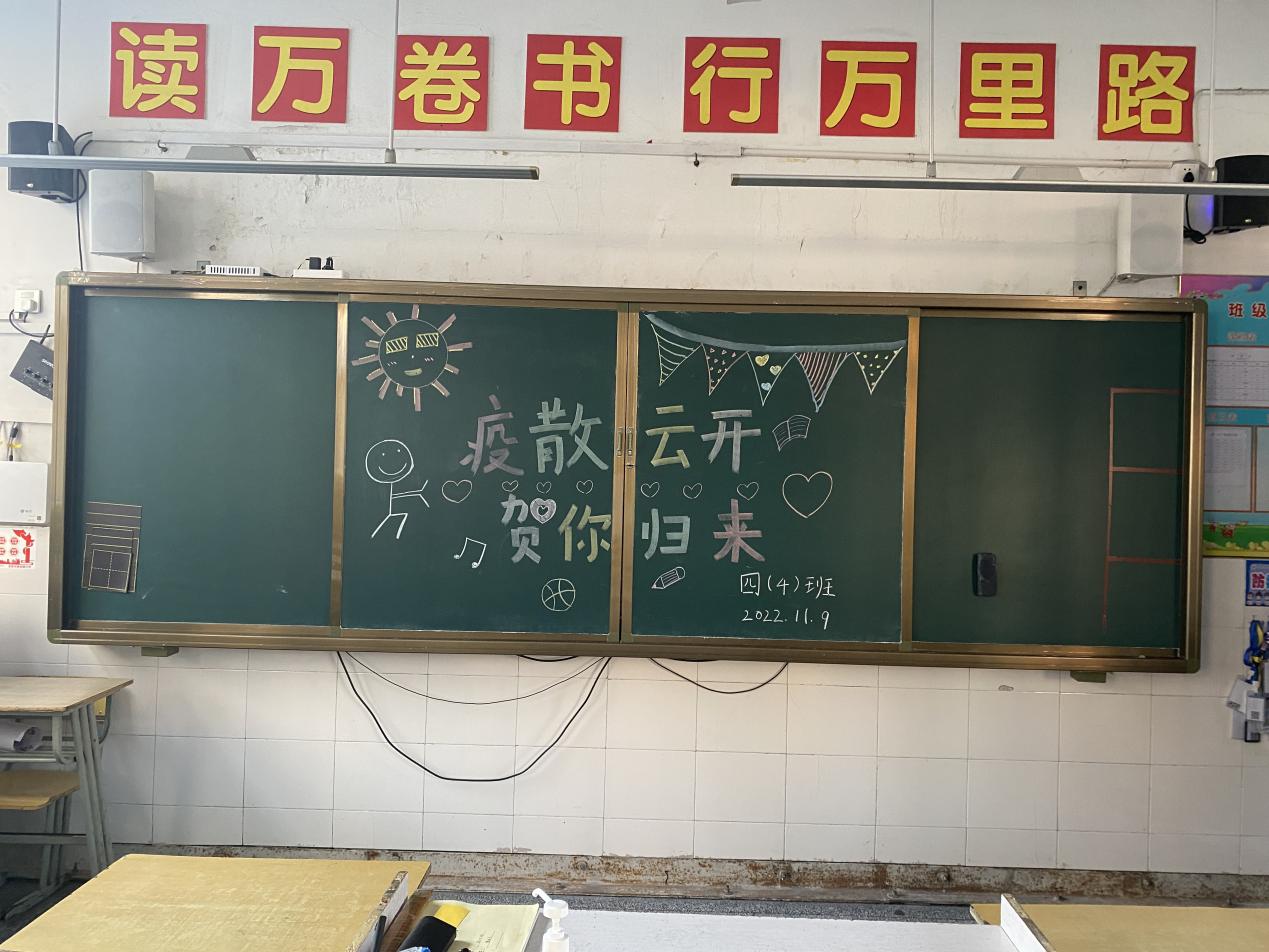 读万卷书行万里路
疫散云开
贺你归来
四(4)班
2022.11.9
班级
防